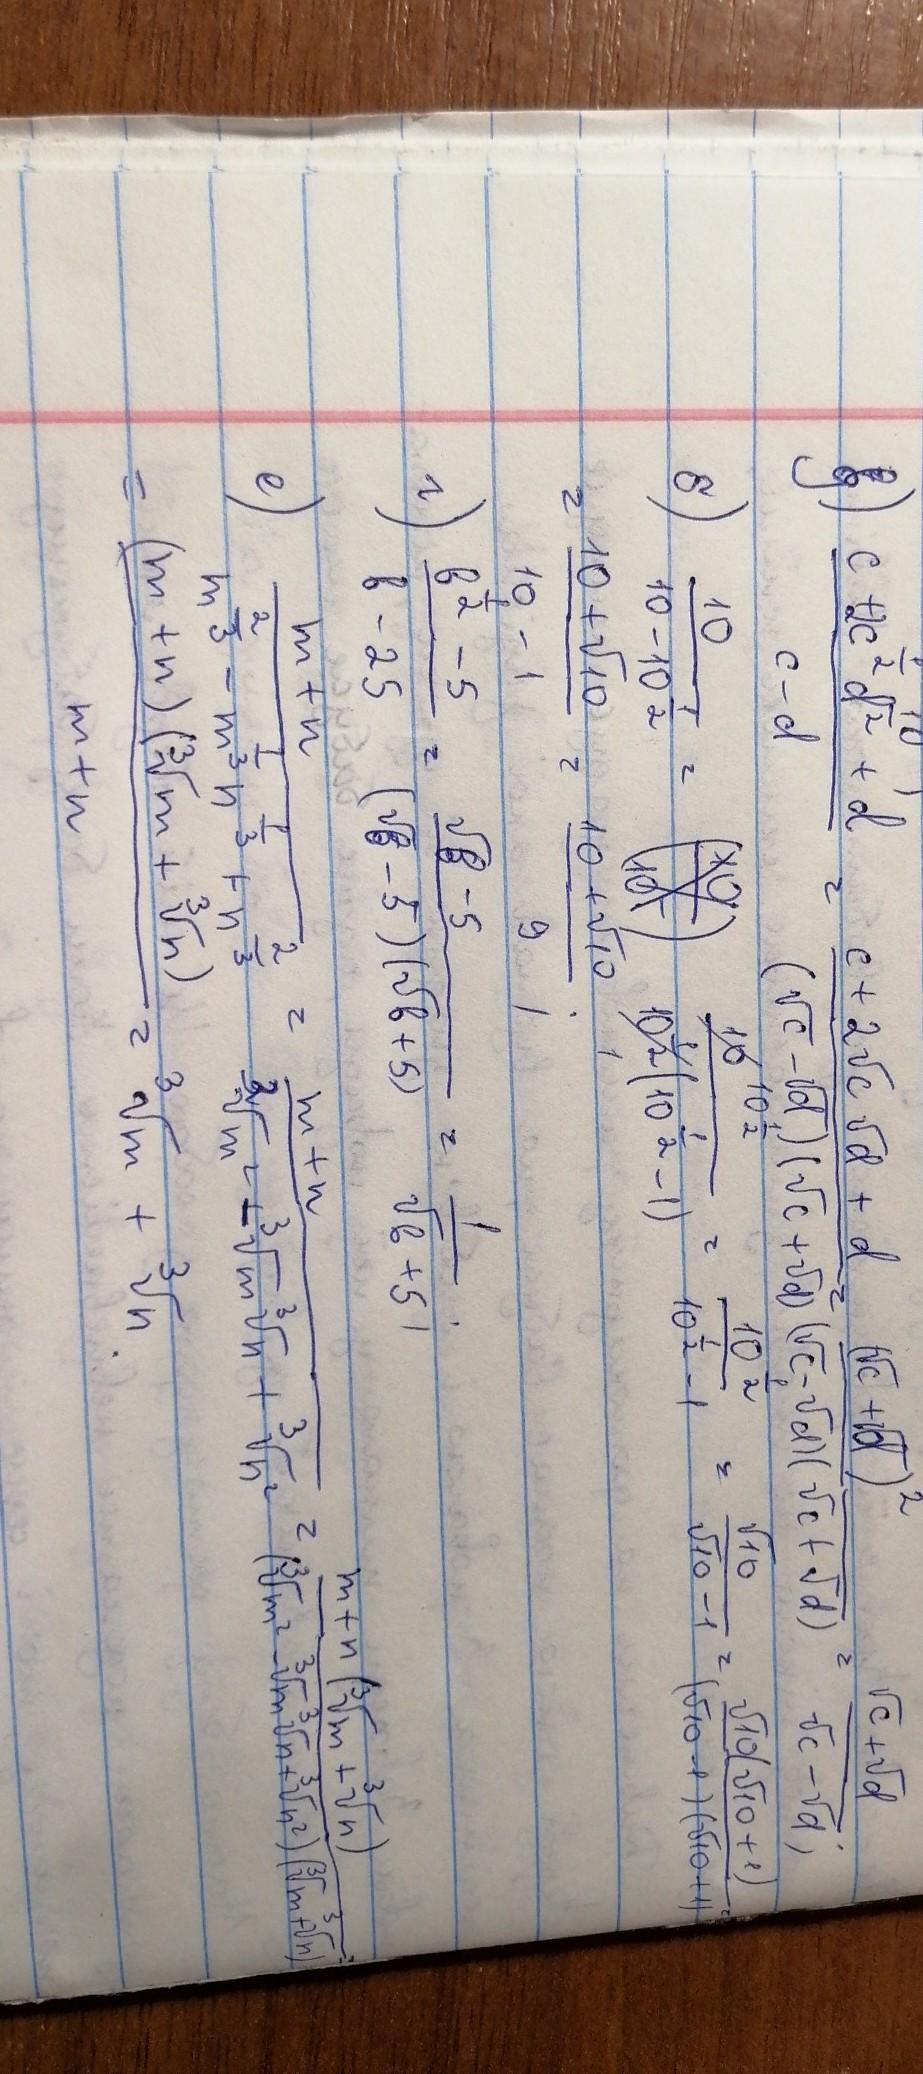 д) (c + 2c^{1/2} d^{1/2} + d)/(c - d) = (c + 2√c √d + d)/((√c - √d)(√c + √d)) = (√c + √d)^2/((√c - √d)(√c + √d)) = (√c + √d)/(√c - √d);
б) 10/(10 - 10^{1/2}) = 10 10^{1/2}/(10^{1/2}(10^{1/2} - 1)) = 10^{1/2}/(10^{1/2} - 1) = √10/(√10 - 1) = √10(√10 + 1)/((√10 - 1)(√10 + 1)) =
= (10 + √10)/(10 - 1) = (10 + √10)/9;
г) (b^{1/2} - 5)/(b - 25) = (√b - 5)/((√b - 5)(√b + 5)) = 1/(√b + 5);
е) (m + n)/(m^{2/3} - m^{1/3} n^{1/3} + n^{2/3}) = (m + n)/(∛m² - ∛m ∛n + ∛n²) = m + n (∛m + ∛n)/((∛m² - ∛m ∛n + ∛n²)(∛m + ∛n)) =
= (m + n)(∛m + ∛n)/(m + n) = ∛m + ∛n.